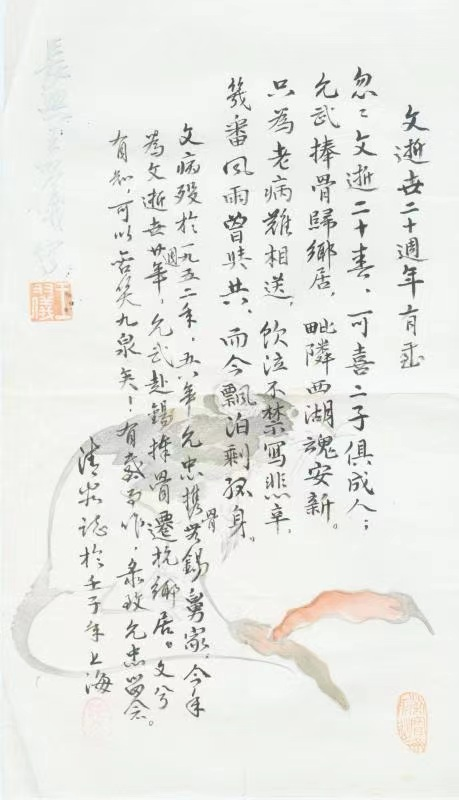 文逝世二十週年有感
忽〻文逝二十春、可喜二子俱成人；
允武捧骨歸鄉居，毗隣西湖魂安新。
只為老病難相送，飲泣不禁寫悲辛，
幾番風雨曾共，而今飄泊剩孤身。
文病歿於一九五二年，五八年允忠携骨無錫舅家，今年
為文逝世廿週年，允武赴錫捧骨遷杭鄉居。文兮
有知，可以含笑九泉矣！有感而作，錄致允忠留念。
清 誌於壬子年上海